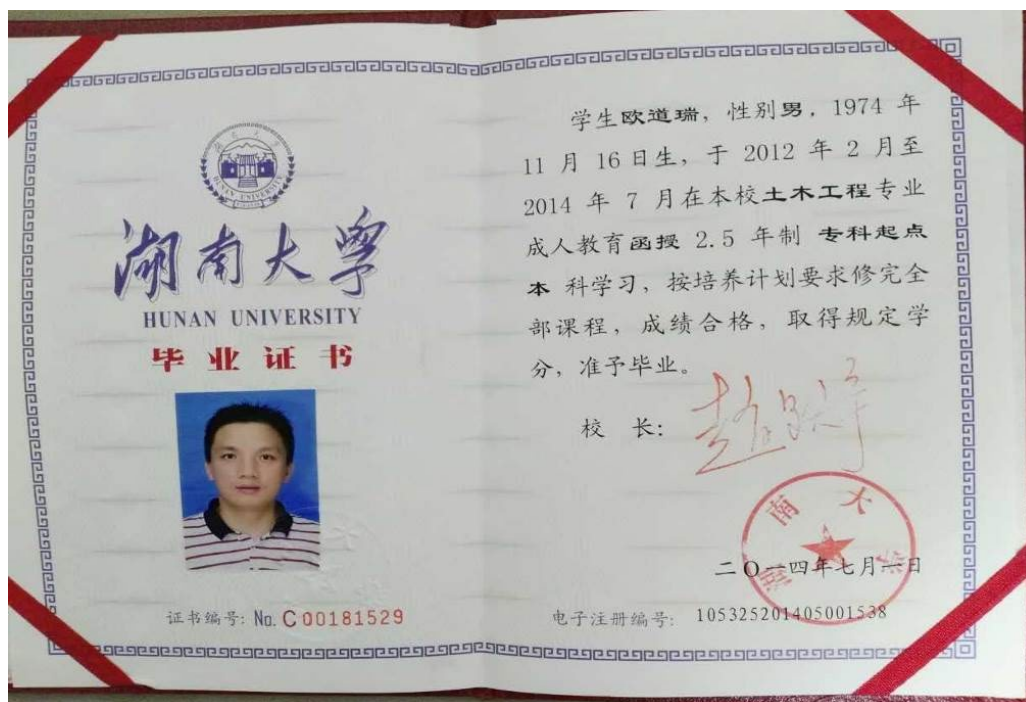 湖南大学
HUNAN UNIVERSITY
湖南大学
HUNAN UNIVERSITY
毕业证书
证书编号: No. C00181529
学生欧道瑞，性别男，1974 年
11 月 16 日生，于 2012 年 2 月至
2014 年 7 月在本校土木工程专业
成人教育函授 2.5 年制 专科起点
本 科学习，按培养计划要求修完全
部课程，成绩合格，取得规定学
分，准予毕业。
校 长:
湖南大学
二〇一四年七月一日
电子注册编号: 105325201405001538